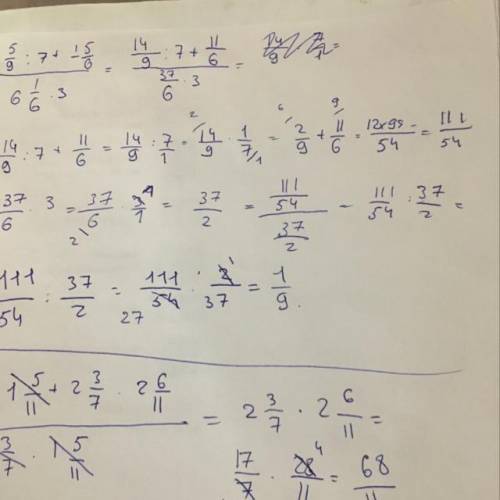 5/9 : 7 + 1 5/6 / 6 1/6 · 3 = 14/9 : 7 + 11/6 / 37/6 · 3 =
14/9 : 7 + 11/6 = 14/9 : 7/1 = 14/9 · 1/7 = 2/9 + 11/6 = 12+99/54 = 111/54
37/6 · 3 = 37/6 · 3/1 = 37/2 = 111/54 / 37/2 - 111/54 : 37/2 =
111/54 : 37/2 = 111/54 · 2/37 = 1/9.
1 5/11 + 2 3/7 · 2 6/11 / 3/7 · 1 5/11 = 2 3/7 · 2 6/11 =
17/7 · 28/11 = 68/11